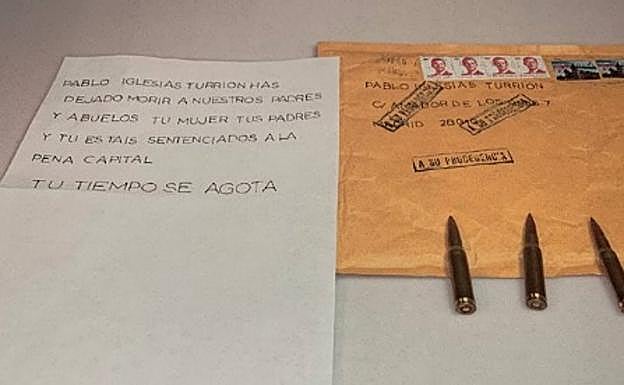 PABLO IGLESIAS TURRION HAS
DEJADO MORIR A NUESTROS PADRES
Y ABUELOS TU MUJER TUS PADRES
Y TU ESTAIS SENTENCIADOS A LA
PENA CAPITAL
TU TIEMPO SE AGOTA
PABLO IGLESIAS TURRION
C/ AMADOR DE LOS 7
MADRID 280
A SU PROCEDENCIA